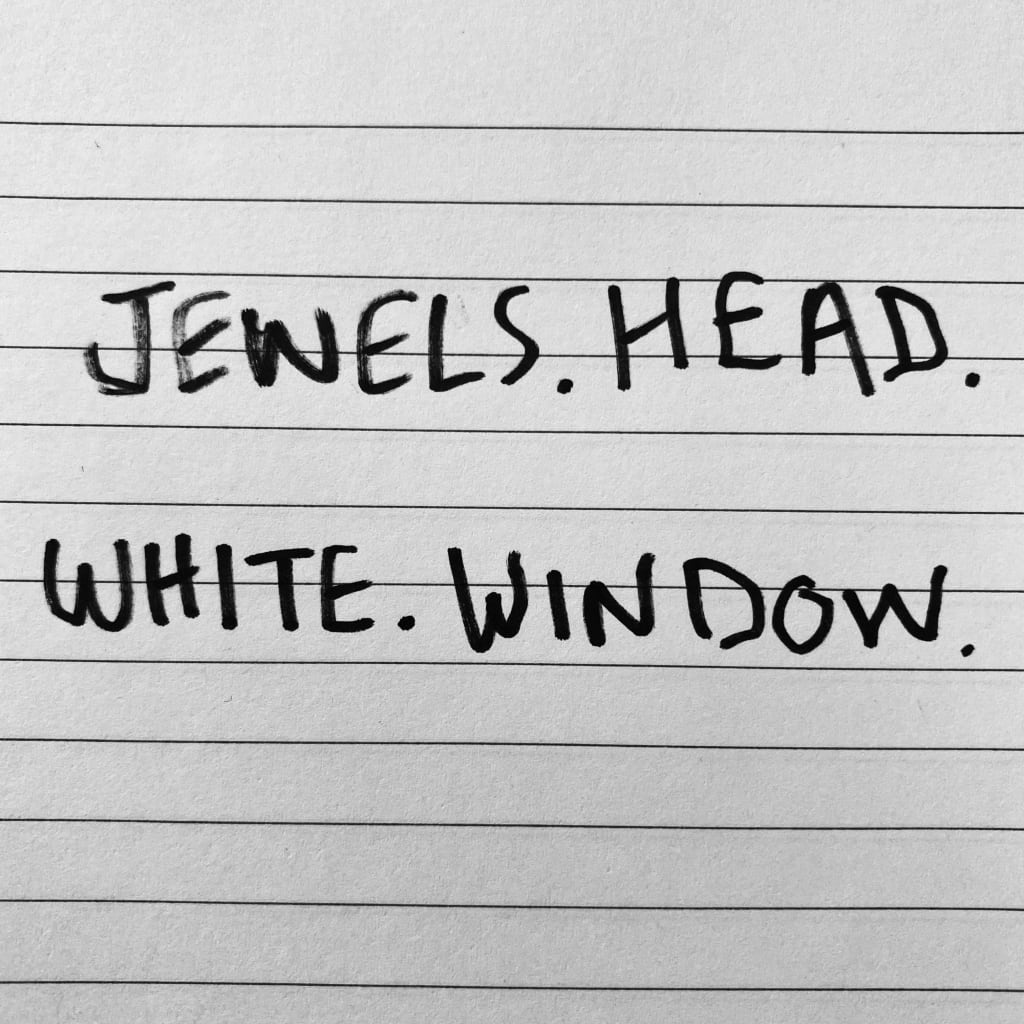 JEWELS. HEAD.
WHITE. WINDOW.